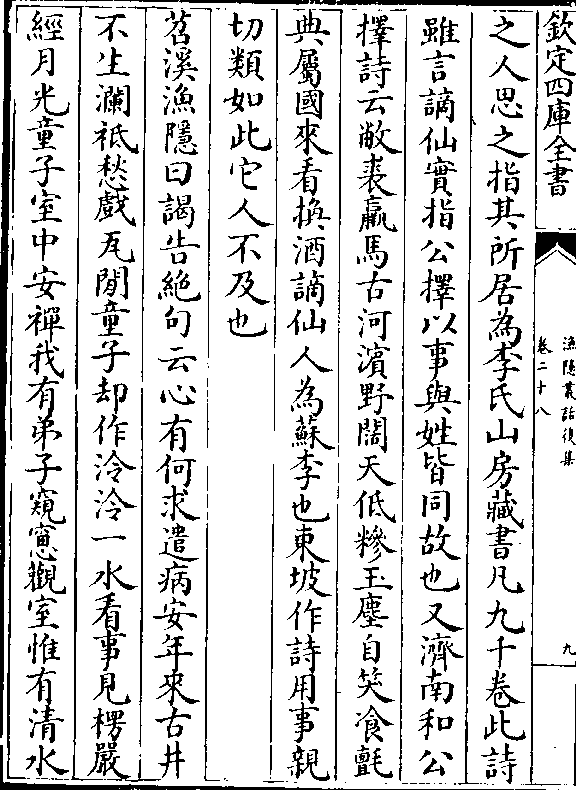 欽定四庫全書
漁隱叢話後集
卷二十八
九
之人思之指其所居為李氏山房藏書凡九千卷此詩
雖言謫仙實指公擇以事與姓皆同故也又濟南和公
擇詩云敝裘羸馬古河濱野闊天低糝玉塵自笑飡氊
典屬國來看換酒謫仙人為蘇李也東坡作詩用事親
切類如此它人不及也
苕溪漁隱曰謁告絶句云心有何求遣病安年來古井
不生瀾祇愁戲瓦閒童子却作泠泠一水看事見楞嚴
經月光童子室中安禪我有弟子窺窻觀室惟有清水